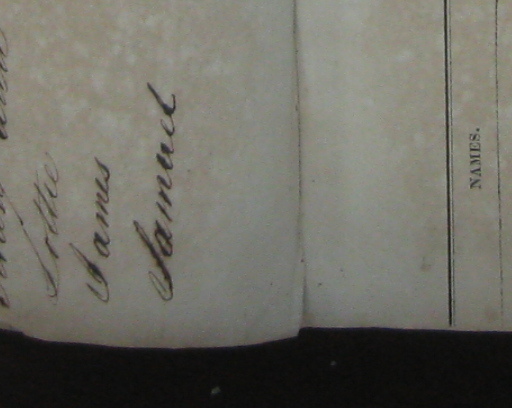 Lottie
James
Samuel
NAMES.